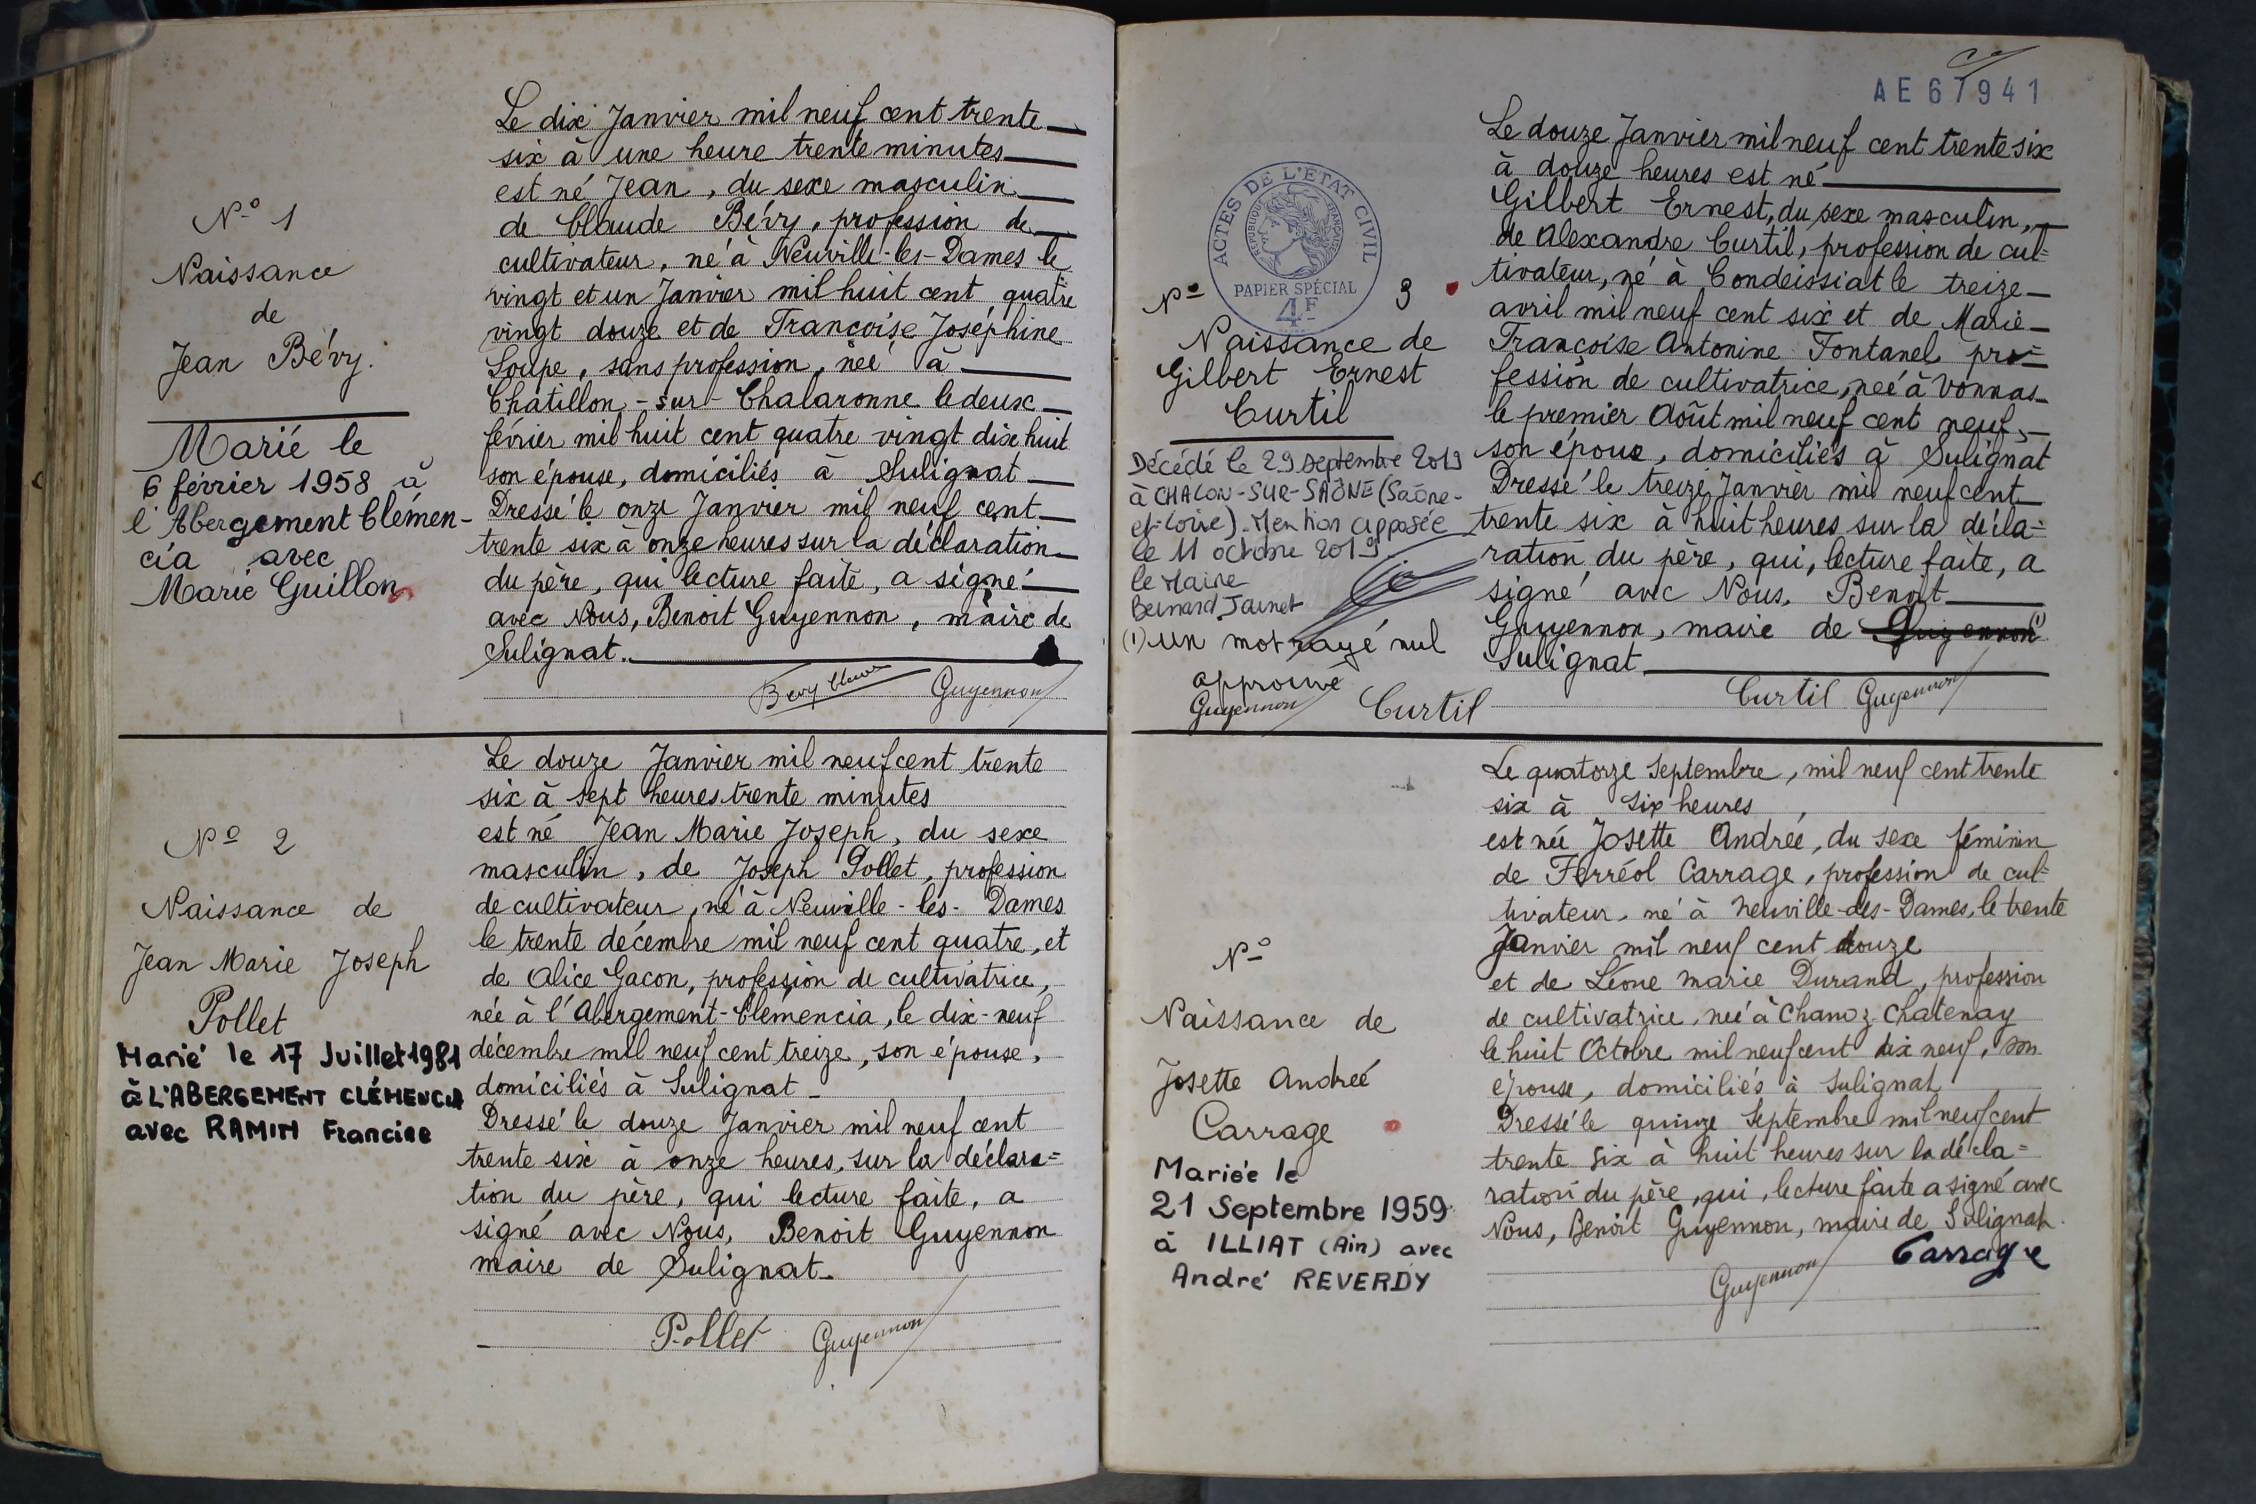 N° 1
Naissance
de
Jean Bévy.
Marié le
6 février 1958 à
l'Abergement Clémen-
cia avec
Marie Guillon
Le dix Janvier mil neuf cent trente
six à une heure trente minutes
est né Jean, du sexe masculin
de Claude Bévy, profession de
cultivateur, né à Neuville-les-Dames le
vingt et un Janvier mil huit cent quatre
vingt douze et de Françoise Joséphine
Soupe, sans profession, née à
Chatillon-sur-Chalaronne le deux
février mil huit cent quatre vingt dix huit
son épouse, domiciliés à Sulignat
Dressé le onze Janvier mil neuf cent
trente six à onze heures sur la déclaration
du père, qui lecture faite, a signé
avec Nous, Benoit Guyennon, maire de
Sulignat.
Bevy Guyennon
N° 2
Naissance de
Jean Marie Joseph
Pollet
Marié le 17 Juillet 1981
à L'ABERGEMENT CLÉMENCIA
avec RAMIN Francine
Le douze Janvier mil neuf cent trente
six à sept heures trente minutes
est né Jean Marie Joseph, du sexe
masculin, de Joseph Pollet, profession
de cultivateur, né à Neuville-les-Dames
le trente décembre mil neuf cent quatre, et
de Alice Gacon, profession de cultivatrice,
née à l'Abergement-Clémencia, le dix-neuf
décembre mil neuf cent treize, son épouse,
domiciliés à Sulignat
Dressé le douze Janvier mil neuf cent
trente six à onze heures, sur la déclara=
tion du père, qui lecture faite, a
signé avec Nous, Benoit Guyennon
maire de Sulignat.
Pollet Guyennon
AE 67941
ACTES DE L'ETAT CIVIL
REPUBLIQUE FRANÇAISE
PAPIER SPÉCIAL
4F
N° 3
Naissance de
Gilbert Ernest
Curtil
Décédé le 29 septembre 2019
à CHALON-SUR-SAÔNE (Saône-
et-Loire). Mention apposée
le 11 octobre 2019.
le Maire
Bernard Jarnet
(1) un mot rayé nul
approuvé
Guyennon Curtil
Le douze Janvier mil neuf cent trente six
à douze heures est né
Gilbert Ernest, du sexe masculin,
de Alexandre Curtil, profession de cul=
tivateur, né à Condeissiat le treize
avril mil neuf cent six et de Marie
Françoise Antonine Fontanel pro=
fession de cultivatrice, neé à Vonnas
le premier Août mil neuf cent neuf,
son épouse, domiciliés à Sulignat
Dressé le treize Janvier mil neuf cent
trente six à huit heures sur la décla=
ration du père, qui, lecture faite, a
signé avec Nous, Benoit
Guyennon, maire de Guyennon (1)
Sulignat
Curtil Guyennon
N°
Naissance de
Josette Andreé
Carrage
Mariée le
21 Septembre 1959
à ILLIAT (Ain) avec
André REVERDY
Le quatorze Septembre, mil neuf cent trente
six à six heures
est née Josette Andrée, du sexe féminin
de Ferréol Carrage, profession de cul=
tivateur, né à Neuville-les-Dames, le trente
Janvier mil neuf cent douze
et de Léone Marie Durand, profession
de cultivatrice, neé à Chanoz-Chatenay
le huit Octobre mil neuf cent dix neuf, son
épouse, domiciliés à Sulignat
Dressé le quinze Septembre mil neuf cent
trente six à huit heures sur la décla=
ration du père, qui, lecture faite a signé avec
Nous, Benoit Guyennon, maire de Sulignat.
Guyennon Carrage